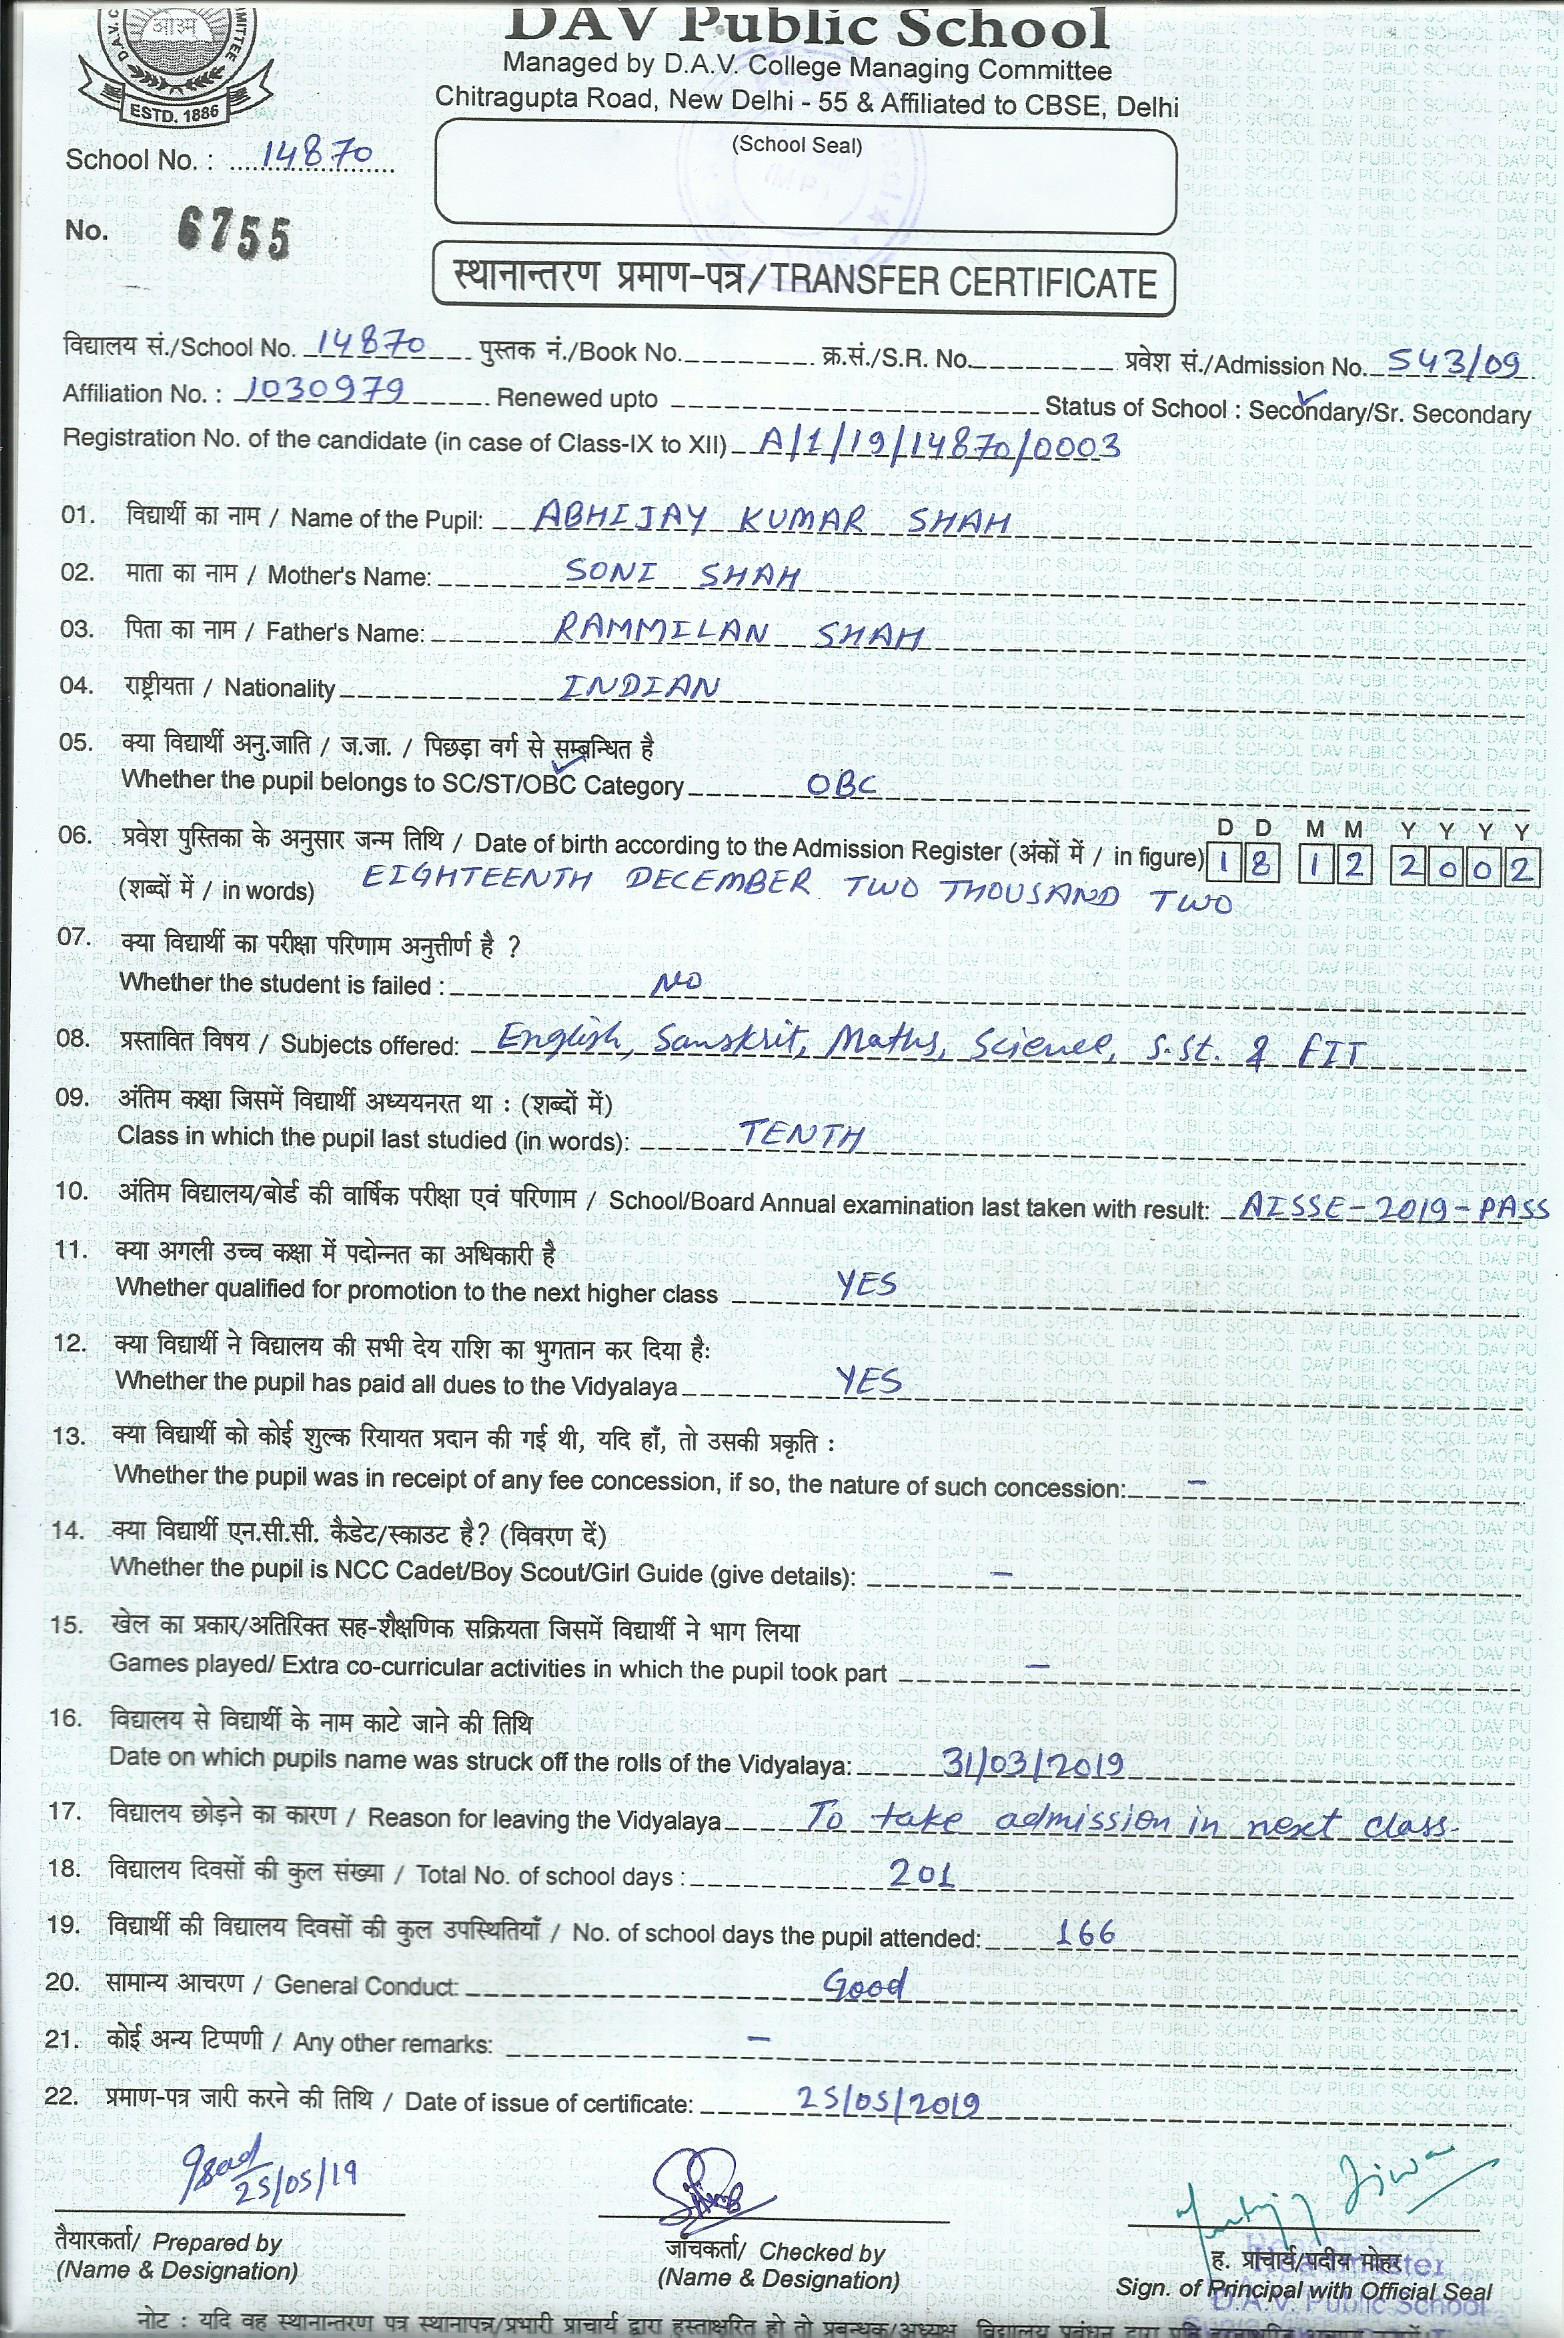 DAV Public School
Managed by D.A.V. College Managing Committee
Chitragupta Road, New Delhi - 55 & Affiliated to CBSE, Delhi
ESTD. 1886
(School Seal)
School No. : 14870
No. 6755
स्थानान्तरण प्रमाण-पत्र/TRANSFER CERTIFICATE
विद्यालय सं./School No. 14870 पुस्तक नं./Book No. क्र.सं./S.R. No. प्रवेश सं./Admission No. 543/09
Affiliation No. : 1030979 Renewed upto Status of School : Secondary/Sr. Secondary
Registration No. of the candidate (in case of Class-IX to XII) A/1/19/14870/0003
01. विद्यार्थी का नाम / Name of the Pupil: ABHIJAY KUMAR SHAH
02. माता का नाम / Mother's Name: SONI SHAH
03. पिता का नाम / Father's Name: RAMMILAN SHAH
04. राष्ट्रीयता / Nationality INDIAN
05. क्या विद्यार्थी अनु.जाति / ज.जा. / पिछड़ा वर्ग से सम्बन्धित है
Whether the pupil belongs to SC/ST/OBC Category OBC
D D M M Y Y Y Y
06. प्रवेश पुस्तिका के अनुसार जन्म तिथि / Date of birth according to the Admission Register (अंकों में / in figure) 18 12 2002
(शब्दों में / in words) EIGHTEENTH DECEMBER TWO THOUSAND TWO
07. क्या विद्यार्थी का परीक्षा परिणाम अनुत्तीर्ण है ?
Whether the student is failed : NO
08. प्रस्तावित विषय / Subjects offered: English, Sanskrit, Maths, Science, S.St. & FIT
09. अंतिम कक्षा जिसमें विद्यार्थी अध्ययनरत था : (शब्दों में)
Class in which the pupil last studied (in words): TENTH
10. अंतिम विद्यालय/बोर्ड की वार्षिक परीक्षा एवं परिणाम / School/Board Annual examination last taken with result: AISSE-2019-PASS
11. क्या अगली उच्च कक्षा में पदोन्नत का अधिकारी है
Whether qualified for promotion to the next higher class YES
12. क्या विद्यार्थी ने विद्यालय की सभी देय राशि का भुगतान कर दिया है:
Whether the pupil has paid all dues to the Vidyalaya YES
13. क्या विद्यार्थी को कोई शुल्क रियायत प्रदान की गई थी, यदि हाँ, तो उसकी प्रकृति :
Whether the pupil was in receipt of any fee concession, if so, the nature of such concession: –
14. क्या विद्यार्थी एन.सी.सी. कैडेट/स्काउट है? (विवरण दें)
Whether the pupil is NCC Cadet/Boy Scout/Girl Guide (give details): –
15. खेल का प्रकार/अतिरिक्त सह-शैक्षणिक सक्रियता जिसमें विद्यार्थी ने भाग लिया
Games played/ Extra co-curricular activities in which the pupil took part –
16. विद्यालय से विद्यार्थी के नाम काटे जाने की तिथि
Date on which pupils name was struck off the rolls of the Vidyalaya: 31/03/2019
17. विद्यालय छोड़ने का कारण / Reason for leaving the Vidyalaya To take admission in next class.
18. विद्यालय दिवसों की कुल संख्या / Total No. of school days : 201
19. विद्यार्थी की विद्यालय दिवसों की कुल उपस्थितियाँ / No. of school days the pupil attended: 166
20. सामान्य आचरण / General Conduct: Good
21. कोई अन्य टिप्पणी / Any other remarks: –
22. प्रमाण-पत्र जारी करने की तिथि / Date of issue of certificate: 25/05/2019
25/05/19
तैयारकर्ता/ Prepared by
(Name & Designation)
जाँचकर्ता/ Checked by
(Name & Designation)
ह. प्राचार्य/पदीय मोहर
Sign. of Principal with Official Seal
Headmaster
D.A.V. Public School
नोट : यदि वह स्थानान्तरण पत्र स्थानापन्न/प्रभारी प्राचार्य द्वारा हस्ताक्षरित हो तो प्रबन्धक/अध्यक्ष, विद्यालय प्रबंधन द्वारा